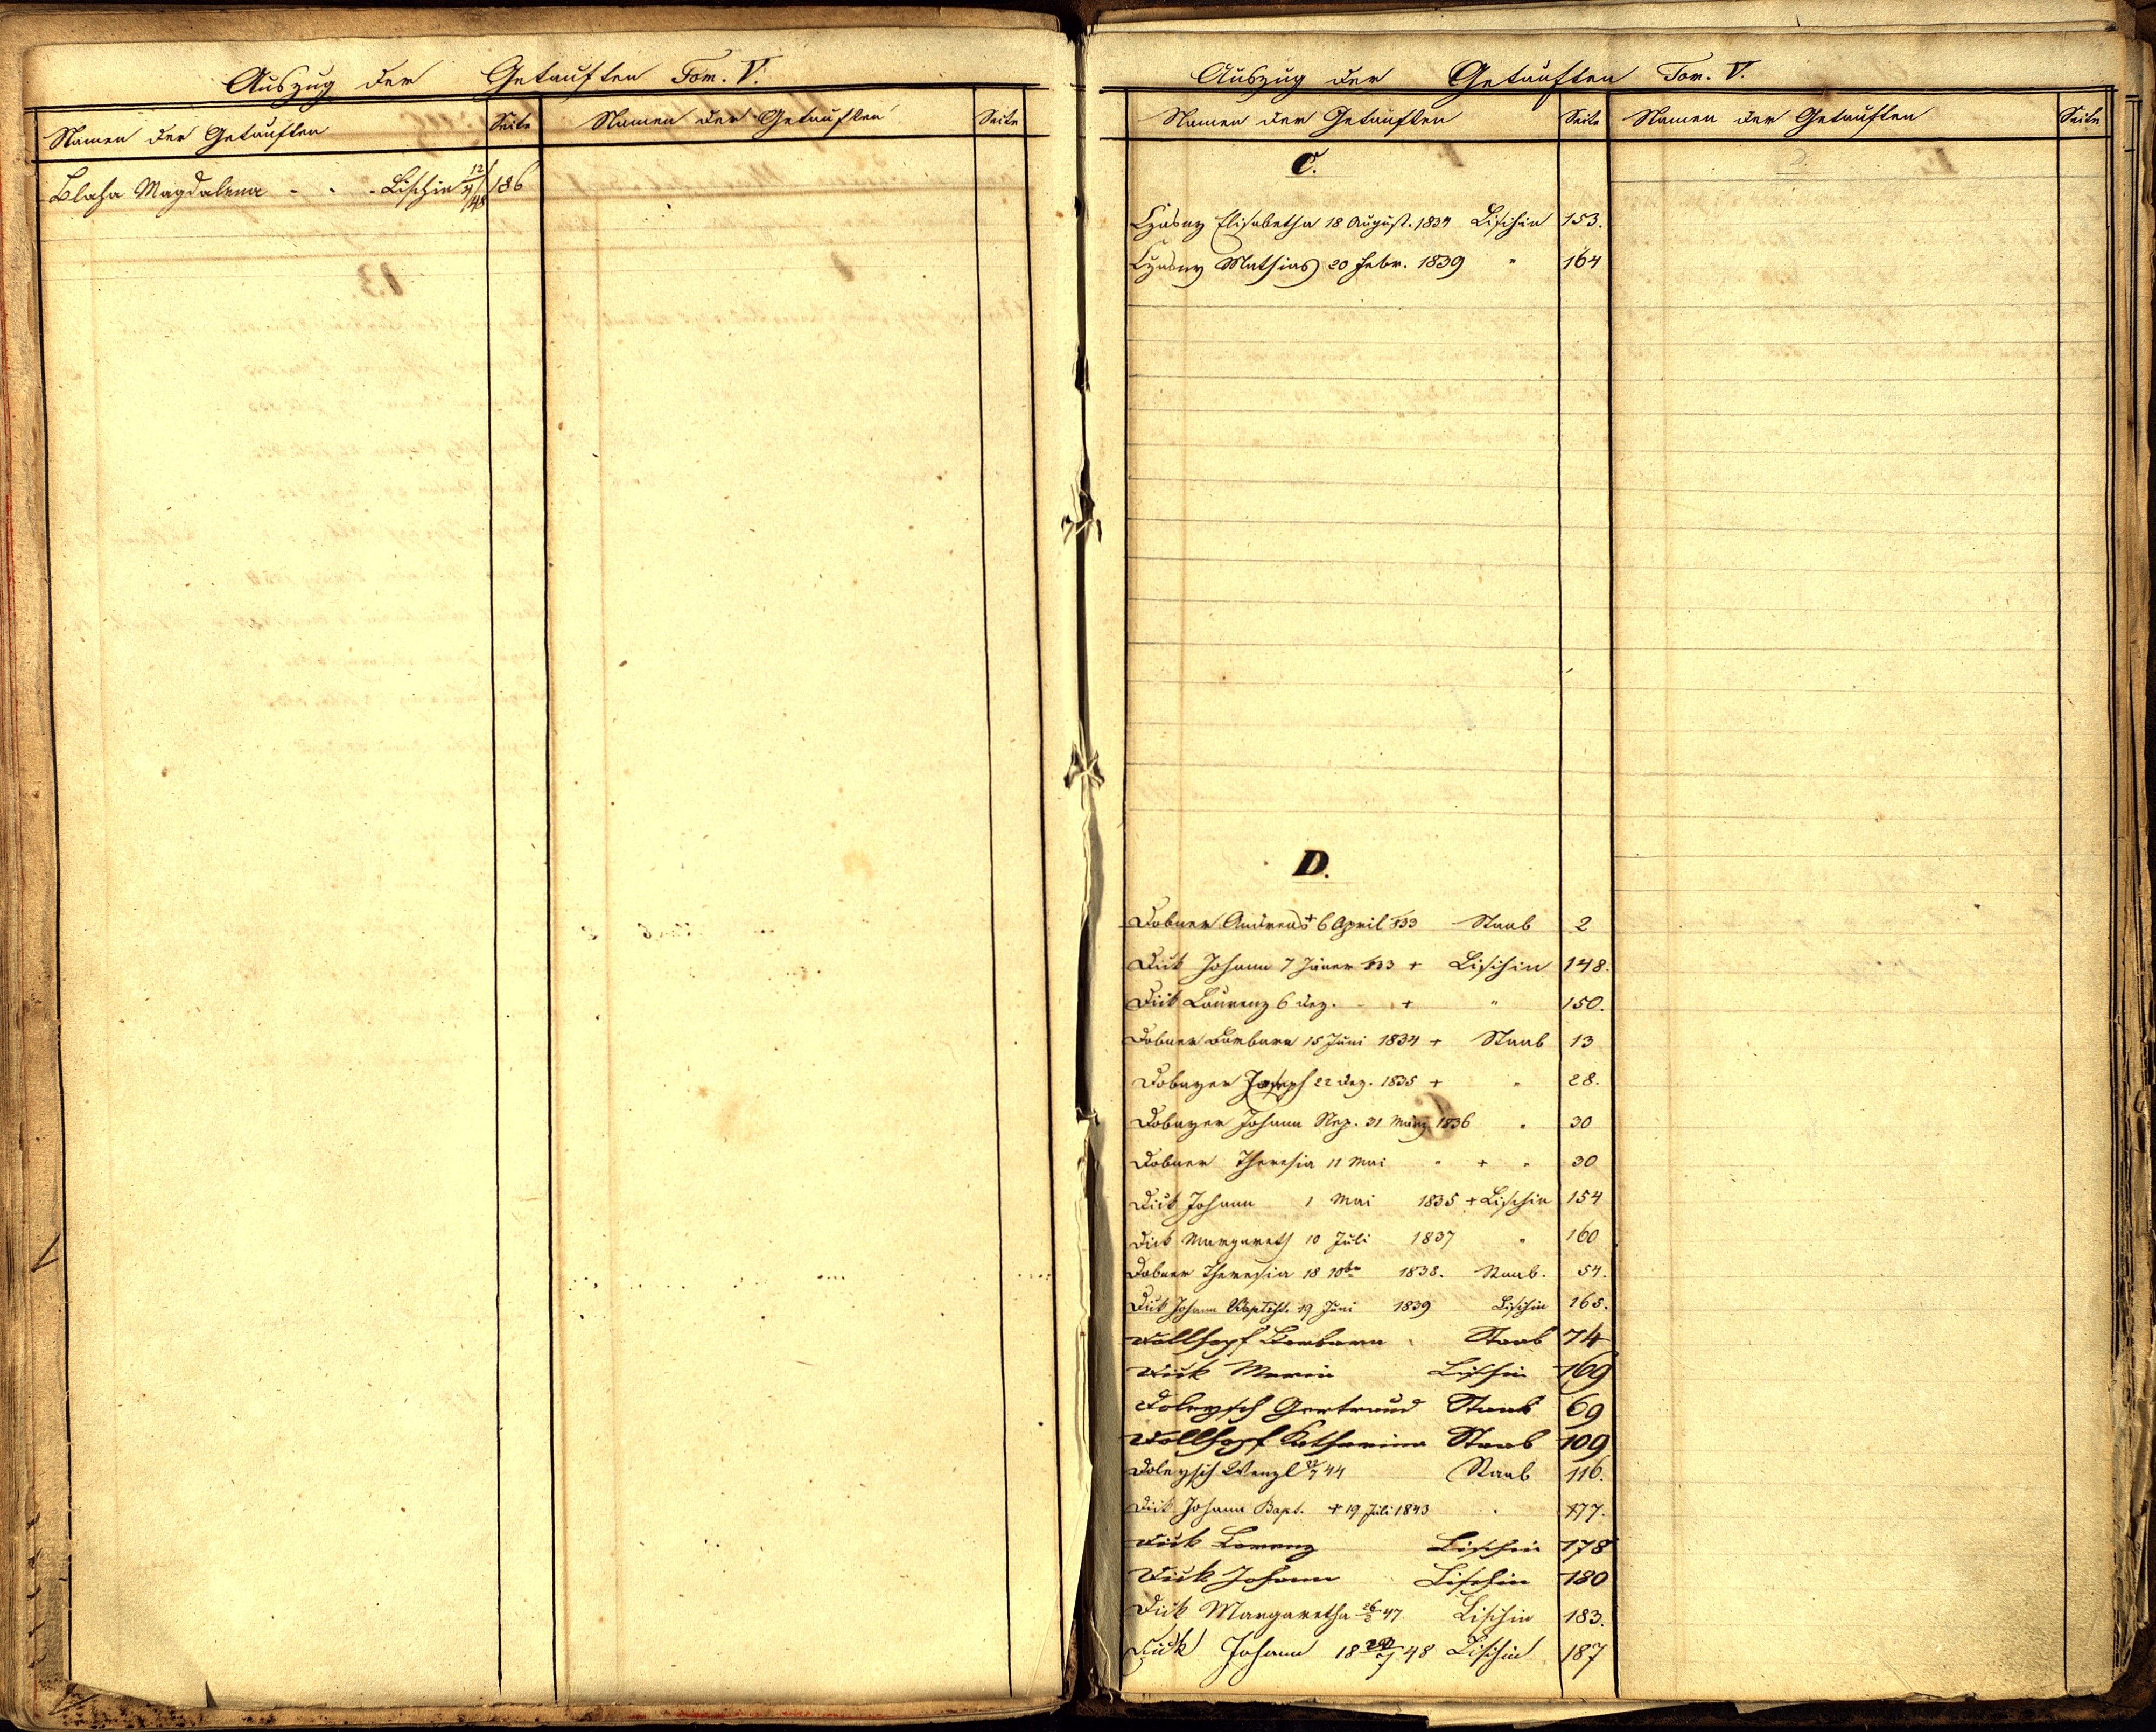 Auszug der Getauften Tom. V.
Namen der Getauften Seite Namen der Getauften Seite
Blaha Magdalena - - - Lischin 12/4/48 186
Auszug der Getauften Tom. V.
Namen der Getauften Seite Namen der Getauften Seite
C.
Czasny Elisabetha 18 August. 1834 Lischin 153.
Czasny Mathias 20 Febr. 1839 " 164
D.
Dobner Andreas + 6 April 833 Staab 2
Dick Johann 7 Jäner 833 + Lischin 148.
Dick Laurenz 6 Dez. - + " 150.
Dobner Barbara 15 Juni 1834 + Staab 13
Dobayer Joseph 22 Dez. 1835 + " 28.
Dobayer Johann Nep. 31 März 1836 " 30
Dobner Theresia 11 Mai " + " 30
Dick Johann 1 Mai 1835 + Lischin 154
Dick Margareth 10 Juli 1837 " 160
Dobner Theresia 18 10ber 1838. Staab. 54.
Dick Johann Baptist. 19 Juni 1839 Lischin 165.
Dollhopf Barbara Staab 74
Dick Maria Lischin 169
Doleysch Gertraud Staab 69
Dollhopf Katharina Staab 109
Doleysch Wenzl 44 Staab 116.
Dick Johann Bapt. + 19 Juli 1843 " 177.
Dick Lorenz Lischin 178
Dick Johann Lischin 180
Dick Margaretha 47 Lischin 183.
Dick Johann 18 48 Lischin 187